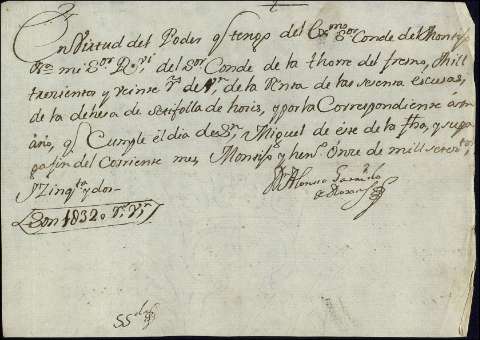 En Virtud del Poder q̃ tengo del Ex.mo S.or Conde del Montijo
mi S.or R.vi del S.or Conde de la thorre del fresno, Mill
trezientos y veinte r.s de V.n de la Renta de las sesenta escusas,
de la dehesa de de horis, y por la Correspondiente á m
año, q̃ Cumple el dia de S.n Miguel de éste de la fha, y su pa
ga fin del Corriente mes, Montijo y hen.o Onze de mill setez.tos
y Zinq.ta y dos
Son 1832 r.s V.n
D.n Alonso
SS.